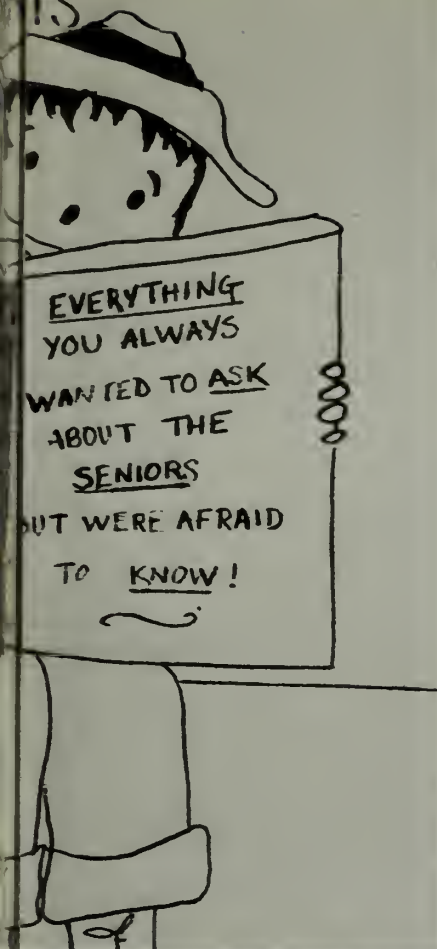 EVERYTHING
YOU ALWAYS
WANTED TO ASK
ABOUT THE
SENIORS
BUT WERE AFRAID
TO KNOW!